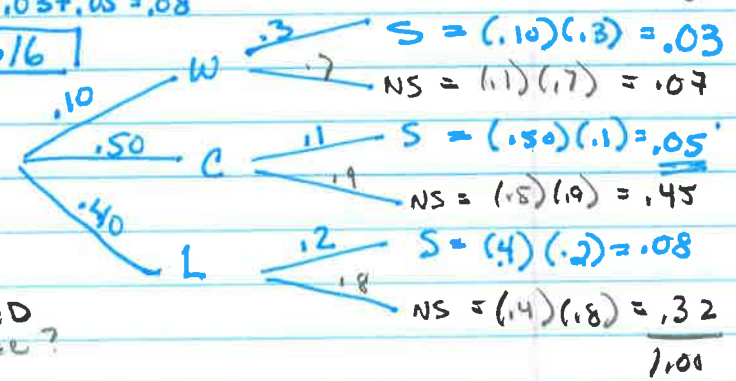 .03+.05 = .08
.16
.3 S = (.10)(.3) = .03
W
.7 NS = (.1)(.7) = .07
.10
.50 C .1 S = (.50)(.1) = .05
.9 NS = (.5)(.9) = .45
.40
L .2 S = (.4)(.2) = .08
.8 NS = (.4)(.8) = .32
1.00